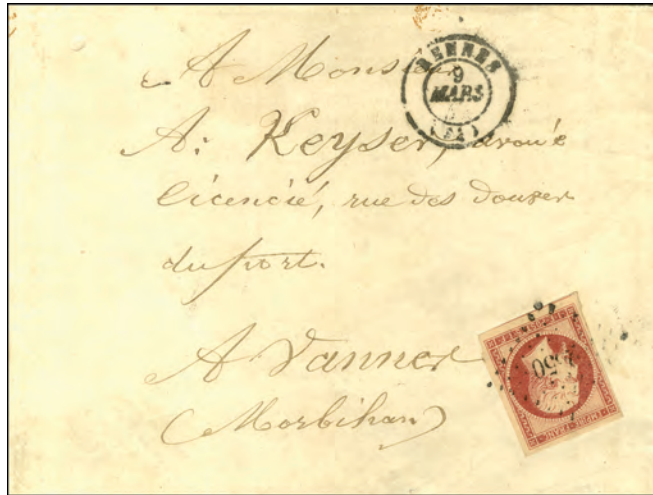 A Monsieur
RENNES
9
MARS
(34)
A. Keyser, avoué
licencié, rue des Douves
du port.
A Vannes
(Morbihan)
EMPIRE FRANC